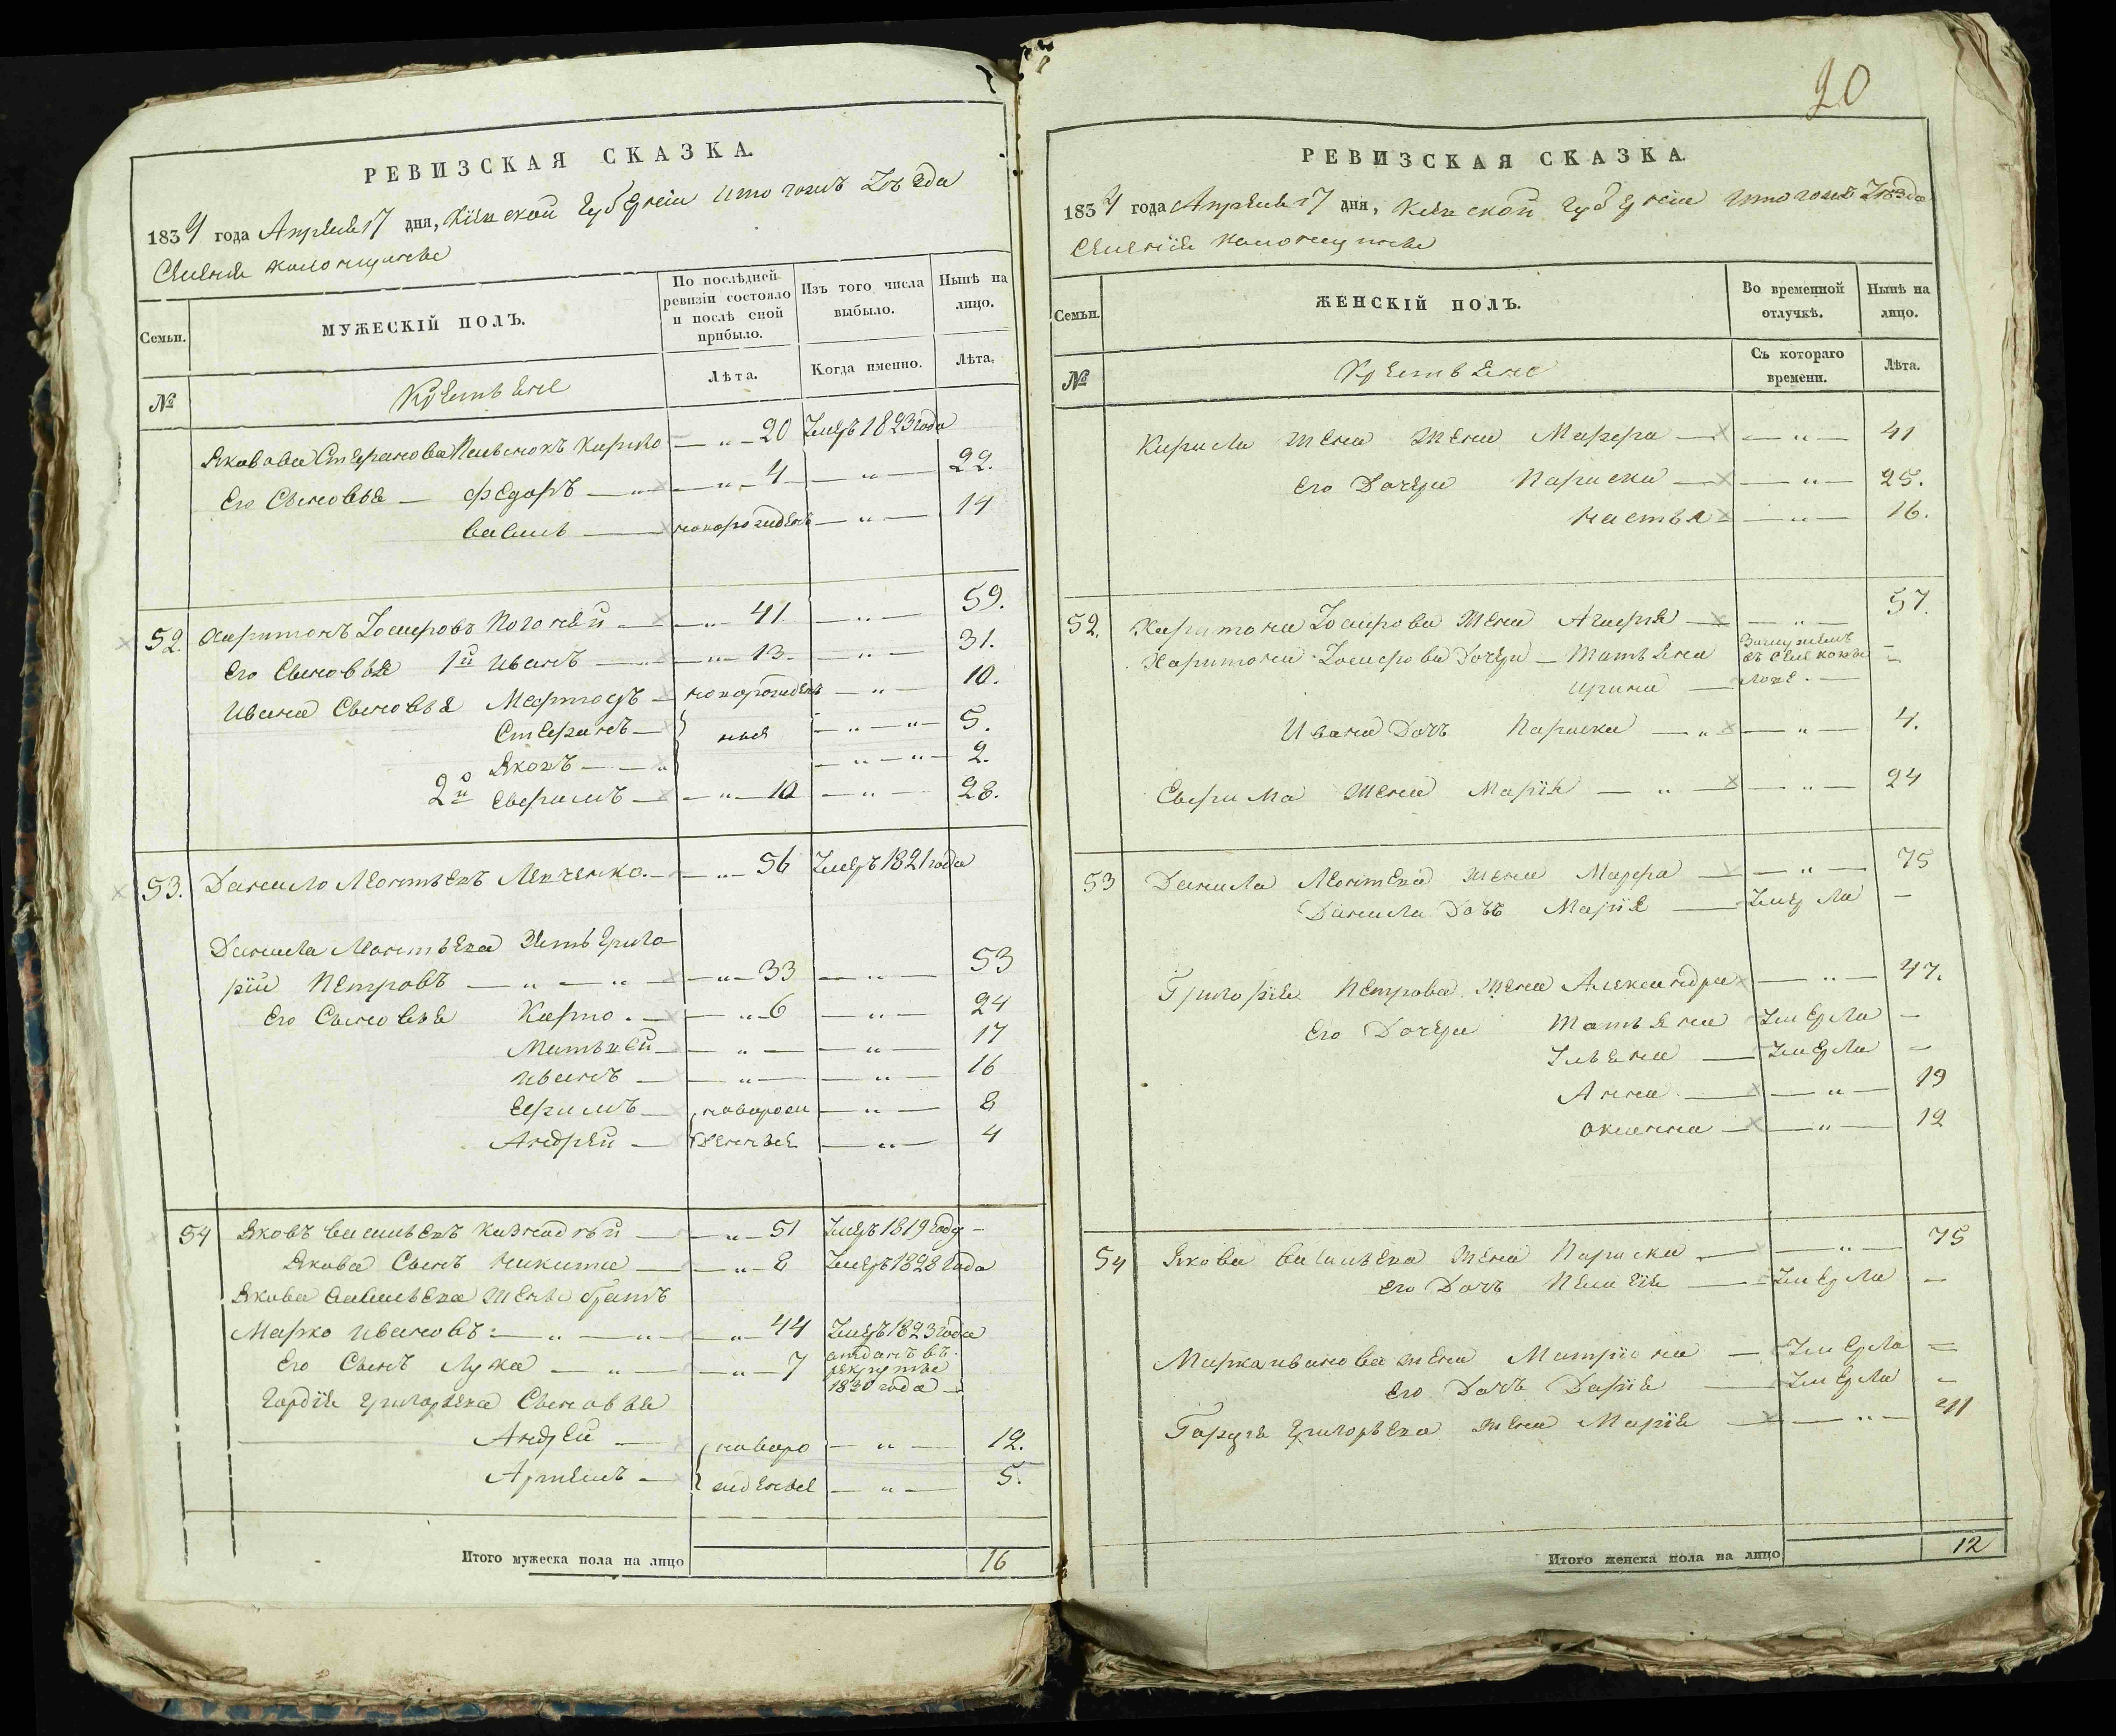 РЕВИЗСКАЯ СКАЗКА.
1834 года Апреля 17 дня, Кіевской Губерніи того же уезда
Селенія
Семьи.
МУЖЕСКІЙ ПОЛЪ.
По послѣдней ревизіи состояло и послѣ оной прибыло.
Изъ того числа выбыло.
Нынѣ на лицо.
№
Крестьяне
Лѣта.
Когда именно.
Лѣта.
Якова Стефанова Кирило — „ — 20 умеръ 1823 года
Его Сыновья — Федоръ — „ — 4 — „ — 22.
василь — новорожден — „ — 14
52. Харитонъ — „ — 41 — „ — 59.
Его Сыновья 1й иванъ — „ — 13 — „ — 31.
ивана Сыновья — новорожден — „ — 10.
Стефанъ — ныя — „ — „ — 5.
Яковъ — „ — „ — „ — 2.
2й — „ — 10 — „ — 28.
53. Данило Леонтьевъ — „ — 56 умеръ 1821 года
Данила Леонтьева Зять Григо-
рій Петровъ — „ — „ — „ — 33 — „ — 53
Его Сыновья Карпо — „ — 6 — „ — 24
Матвей — „ — „ — 17
иванъ — „ — „ — 16
Ефимъ — новорож — „ — 8
Андрей — денные — „ — 4
54 Яковъ васильевъ — „ — 51 умеръ 1819 году —
Якова Сынъ никита — „ — 8 умеръ 1828 года
Якова васильева жены братъ
Марко ивановъ — „ — „ — „ — 44 умеръ 1823 года
Его Сынъ Лука — „ — „ — 7 отданъ въ рекруты 1830 года —
Гордія григорьева Сыновья
Андрей — новоро — „ — 12.
Артемъ — жденные — „ — 5.
Итого мужеска пола на лицо 16
20
РЕВИЗСКАЯ СКАЗКА.
1834 года Апреля 17 дня, Кіевской губерніи того же уезда
Селенія
Семьи.
ЖЕНСКІЙ ПОЛЪ.
Во временной отлучкѣ.
Нынѣ на лицо.
№
Крестьяне
Съ котораго времени.
Лѣта.
Кирила жена жена Марфа — „ — 41
Его Дочери Параска — „ — 25.
настья — „ — 16.
52. Харитона жена — „ — 57.
Харитона Дочери — Татьяна Замужемъ —
ирина —
Ивана Дочь Параска — „ — „ — 4.
жена Марія — „ — „ — 24
53 Данила Леонтева жена Марфа — „ — 75
Данила Дочь Марія — умерла —
Григорія Петрова жена Александра — „ — 47.
Его Дочери Татьяна умерла —
Ульяна — умерла —
Анна — „ — 19
оксанна — „ — 12
54 Якова васильева жена Параска — „ — 75
его Дочь — умерла —
Марка иванова жена Матріона — умерла —
его Дочь Дарія — умерла —
григорьева жена Марія — „ — 41
Итого женска пола на лицо 12